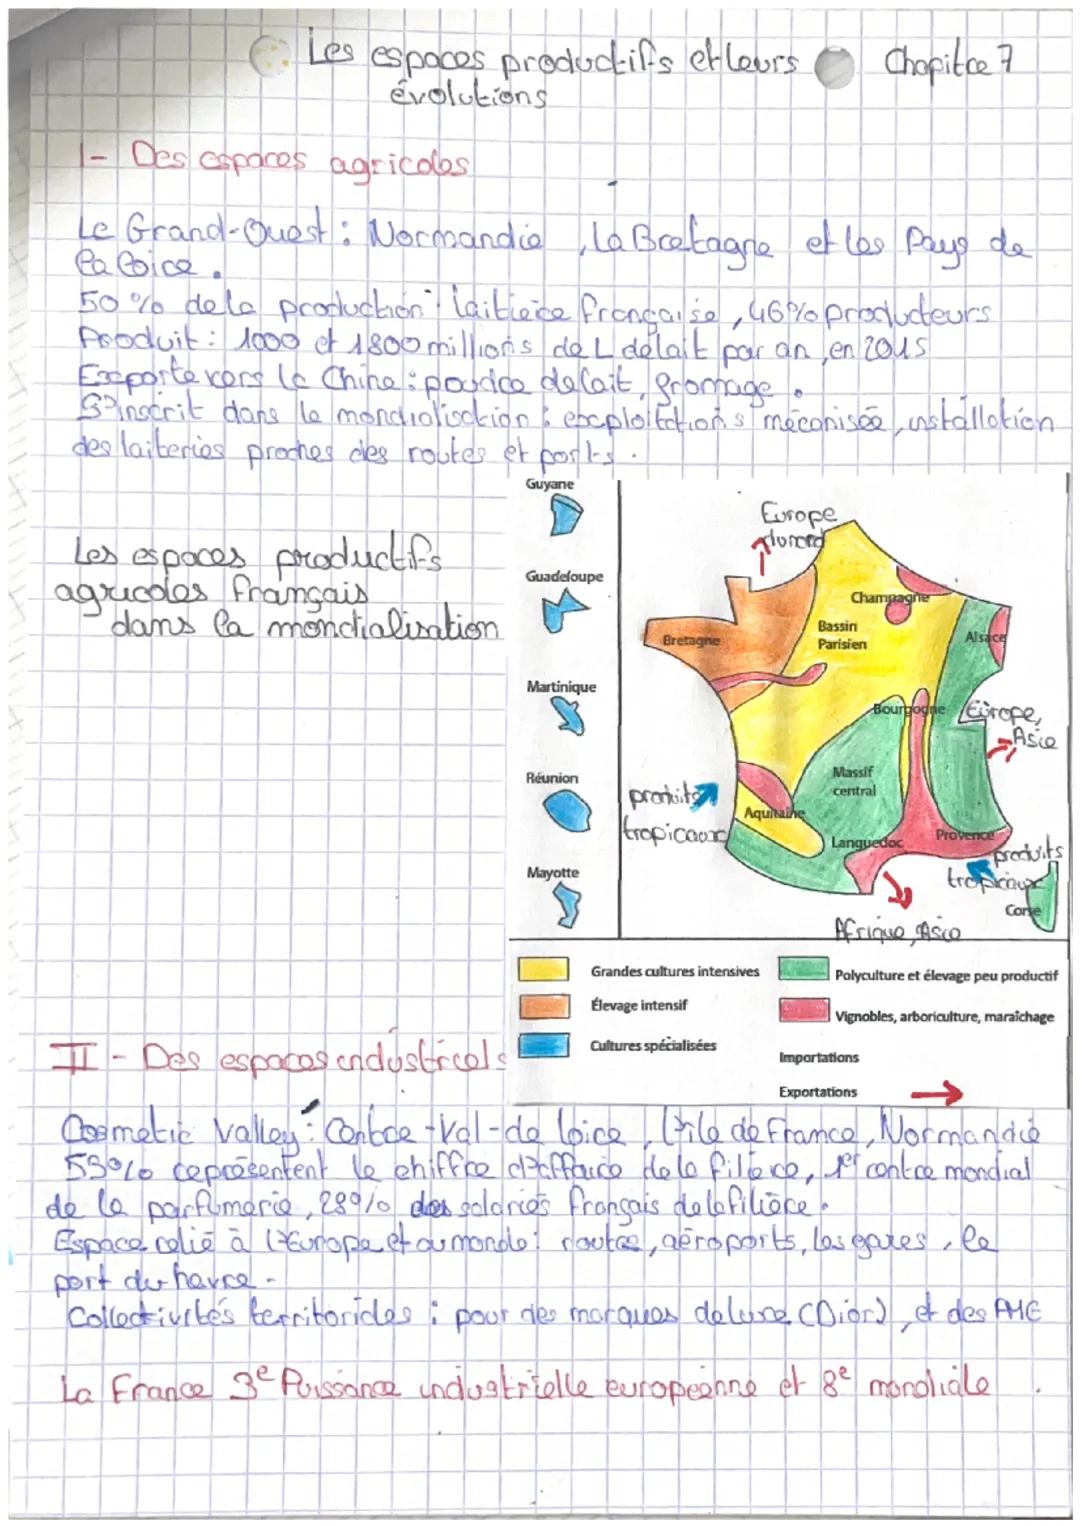 Les espaces productifs et leurs
évolutions
Chapitre 7
I- Des espaces agricoles
Le Grand-Ouest : Normandie, La Bretagne et les Pays de
la loire.
50% de la production laitière française, 46% producteurs
Produit : 1000 et 1800 millions de L de lait par an, en 2015
Exporte vers la Chine : poudre de lait, fromage.
S'inscrit dans le mondialisation : exploitations mécanisée, installation
des laiteries proches des routes et ports.
Les espaces productifs
agricoles français
dans la mondialisation
Guyane
Guadeloupe
Martinique
Réunion
Mayotte
Europe
du nord
Champagne
Bretagne
Bassin
Parisien
Alsace
Bourgogne
Europe,
Asie
Massif
central
produits
tropicaux
Aquitaine
Languedoc
Provence
produits
tropicaux
Corse
Afrique, Asie
Grandes cultures intensives
Élevage intensif
Cultures spécialisées
Polyculture et élevage peu productif
Vignobles, arboriculture, maraîchage
Importations
Exportations
II - Des espaces industriels
Cosmetic Valley : Centre-Val-de loire, l'île de France, Normandie
53% représentent le chiffre d'affaire de la filière, 1er centre mondial
de la parfumerie, 28% des salariés français de la filière.
Espace relié à l'Europe et au monde : routes, aéroports, les gares, le
port du havre.
Collectivités territoriales : pour des marques de luxe (Dior), et des PME
La France 3e Puissance industrielle européenne et 8e mondiale.